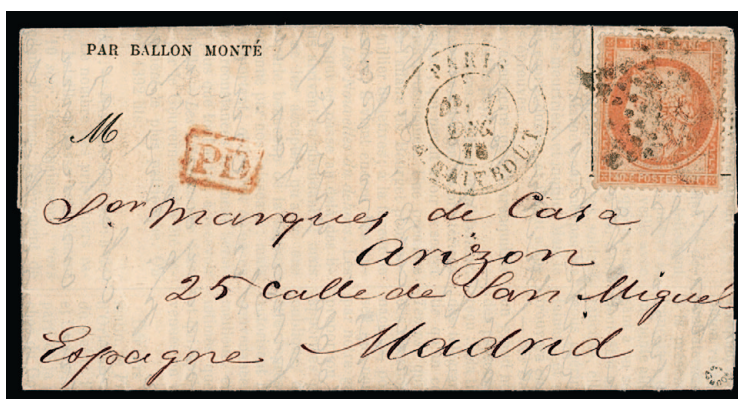 PAR BALLON MONTÉ
PARIS
DEC.
R. TAITBOUT
M
PD
40 c POSTES 40 c
Sor Marques de Casa
Arizon
25 calle de San Miguel
Espagne Madrid